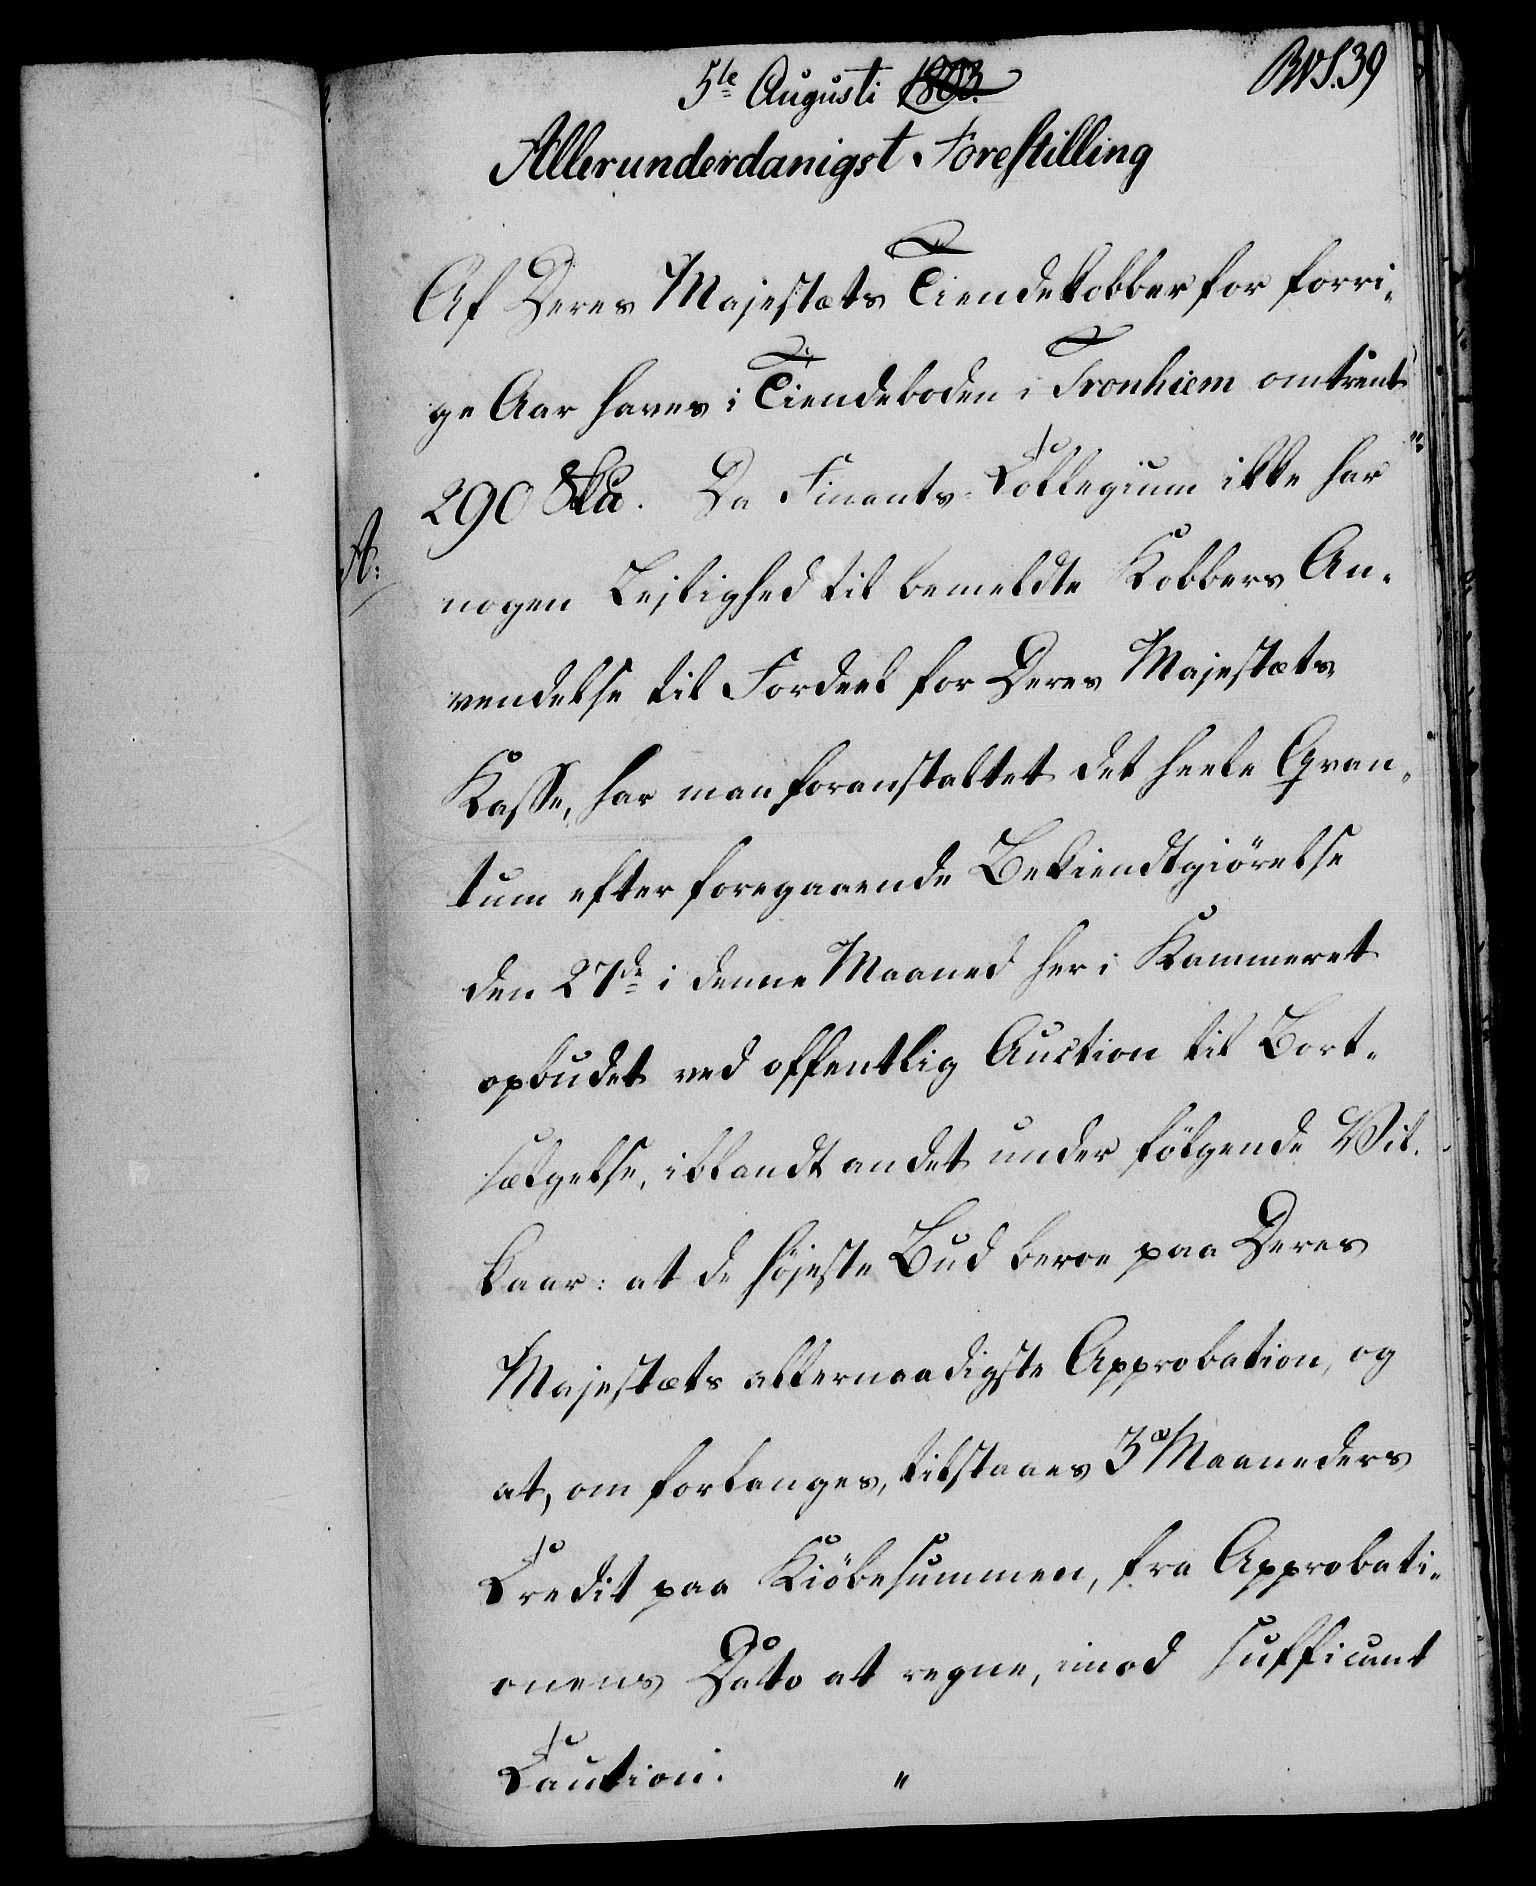 5te Augusti 1803.
Allerunderdanigst Forestilling
Af Deres Majestæts Tiendekobber for forri-
ge Aar haves i Tiendeboden i Tronhiem omtrent
290 Sk℔. Da Finants-Collegium ikke har
A:
nogen Lejlighed til bemeldte Kobbers An-
vendelse til Fordeel for Deres Majestæts
Kasse, har man foranstaltet det heele Qvan-
tum efter foregaaende Bekiendtgiörelse
den 27de i denne Maaned her i Kammeret
opbudet ved offentlig Auction til Bort-
sælgelse, iblandt andet under fölgende Vil-
kaar: at de höjeste Bud beroe paa Deres
Majestæts allernaadigste Approbation, og
at, om forlanges, tilstaaes 3 Maaneders
Credit paa Kiöbesummen, fra Approbati-
onens Dato at regne, imod sufficant
Caution.